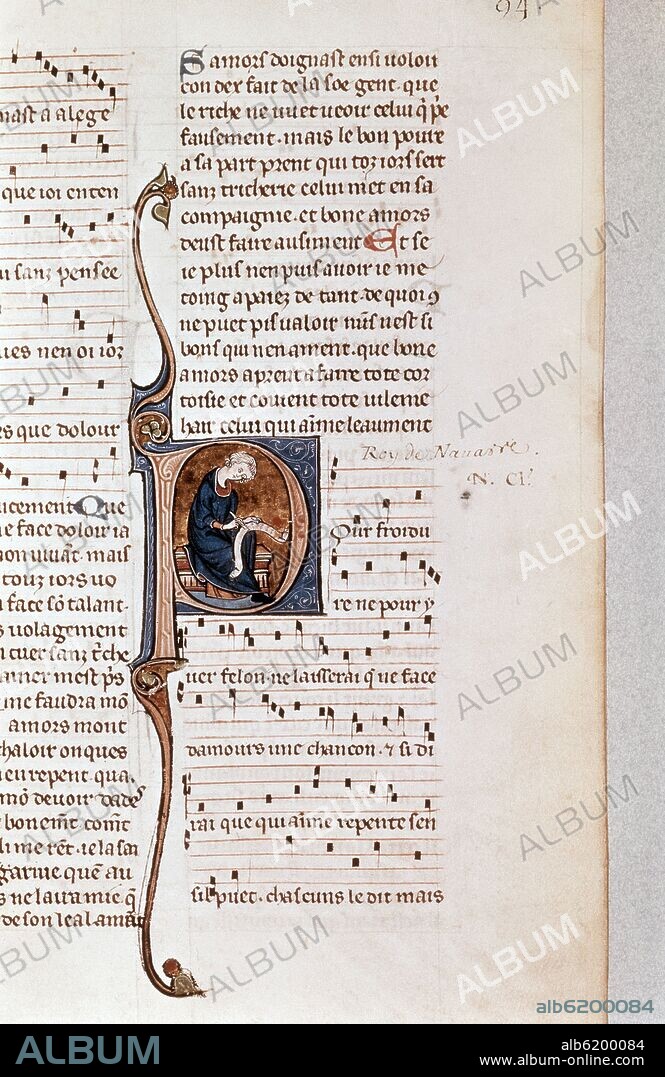 94
mast a alege
que ioi enten
ui sanz pensee
ues nen oi ior
es que dolour
ucement Que
e face doloir ia
non uiuant. mais
touz iors uo
a face sō talant.
s uolagement
cuer sanz tͬche
amer mest pͥs
me faudra mō
amors mont
chaloir onques
eu repent. qua
mō deuoir dadeͬ
bonemt comt
li me rēt. ie la sen
garme quen au
s ne laira mie. q̄
de son leal amāt
Samors doignast ensi uoloir
con dex fait de la soe gent. que
le riche ne uuet ueoir celui q̄ pͤe
fausement. mais le bon poure
a sa part prent qui toz iors sert
sanz tricherie celui met en sa
compaignie. et bone amors
deust faire ausiment Et se
ie plus nen puis auoir ie me
toing a paiez de tant. de quoi ꝯ
ne puet pis ualoir nus nest si
bons qui nen ament. que bone
amors aprent a faire tote cor
toisie et couient tote uilenie
hair celui qui aīme leaument
Roy de Nauarre.
N. Cl.
Pour froidu
re ne pour y
uer felon. ne laisserai q̄ ne face
damours une chancon. ⁊ si di
rai que qui aīme repente sen
sil puet. chascuns le dit mais
ALBUM
alb6200084
ALBUM
alb6200084
www.album-online.com